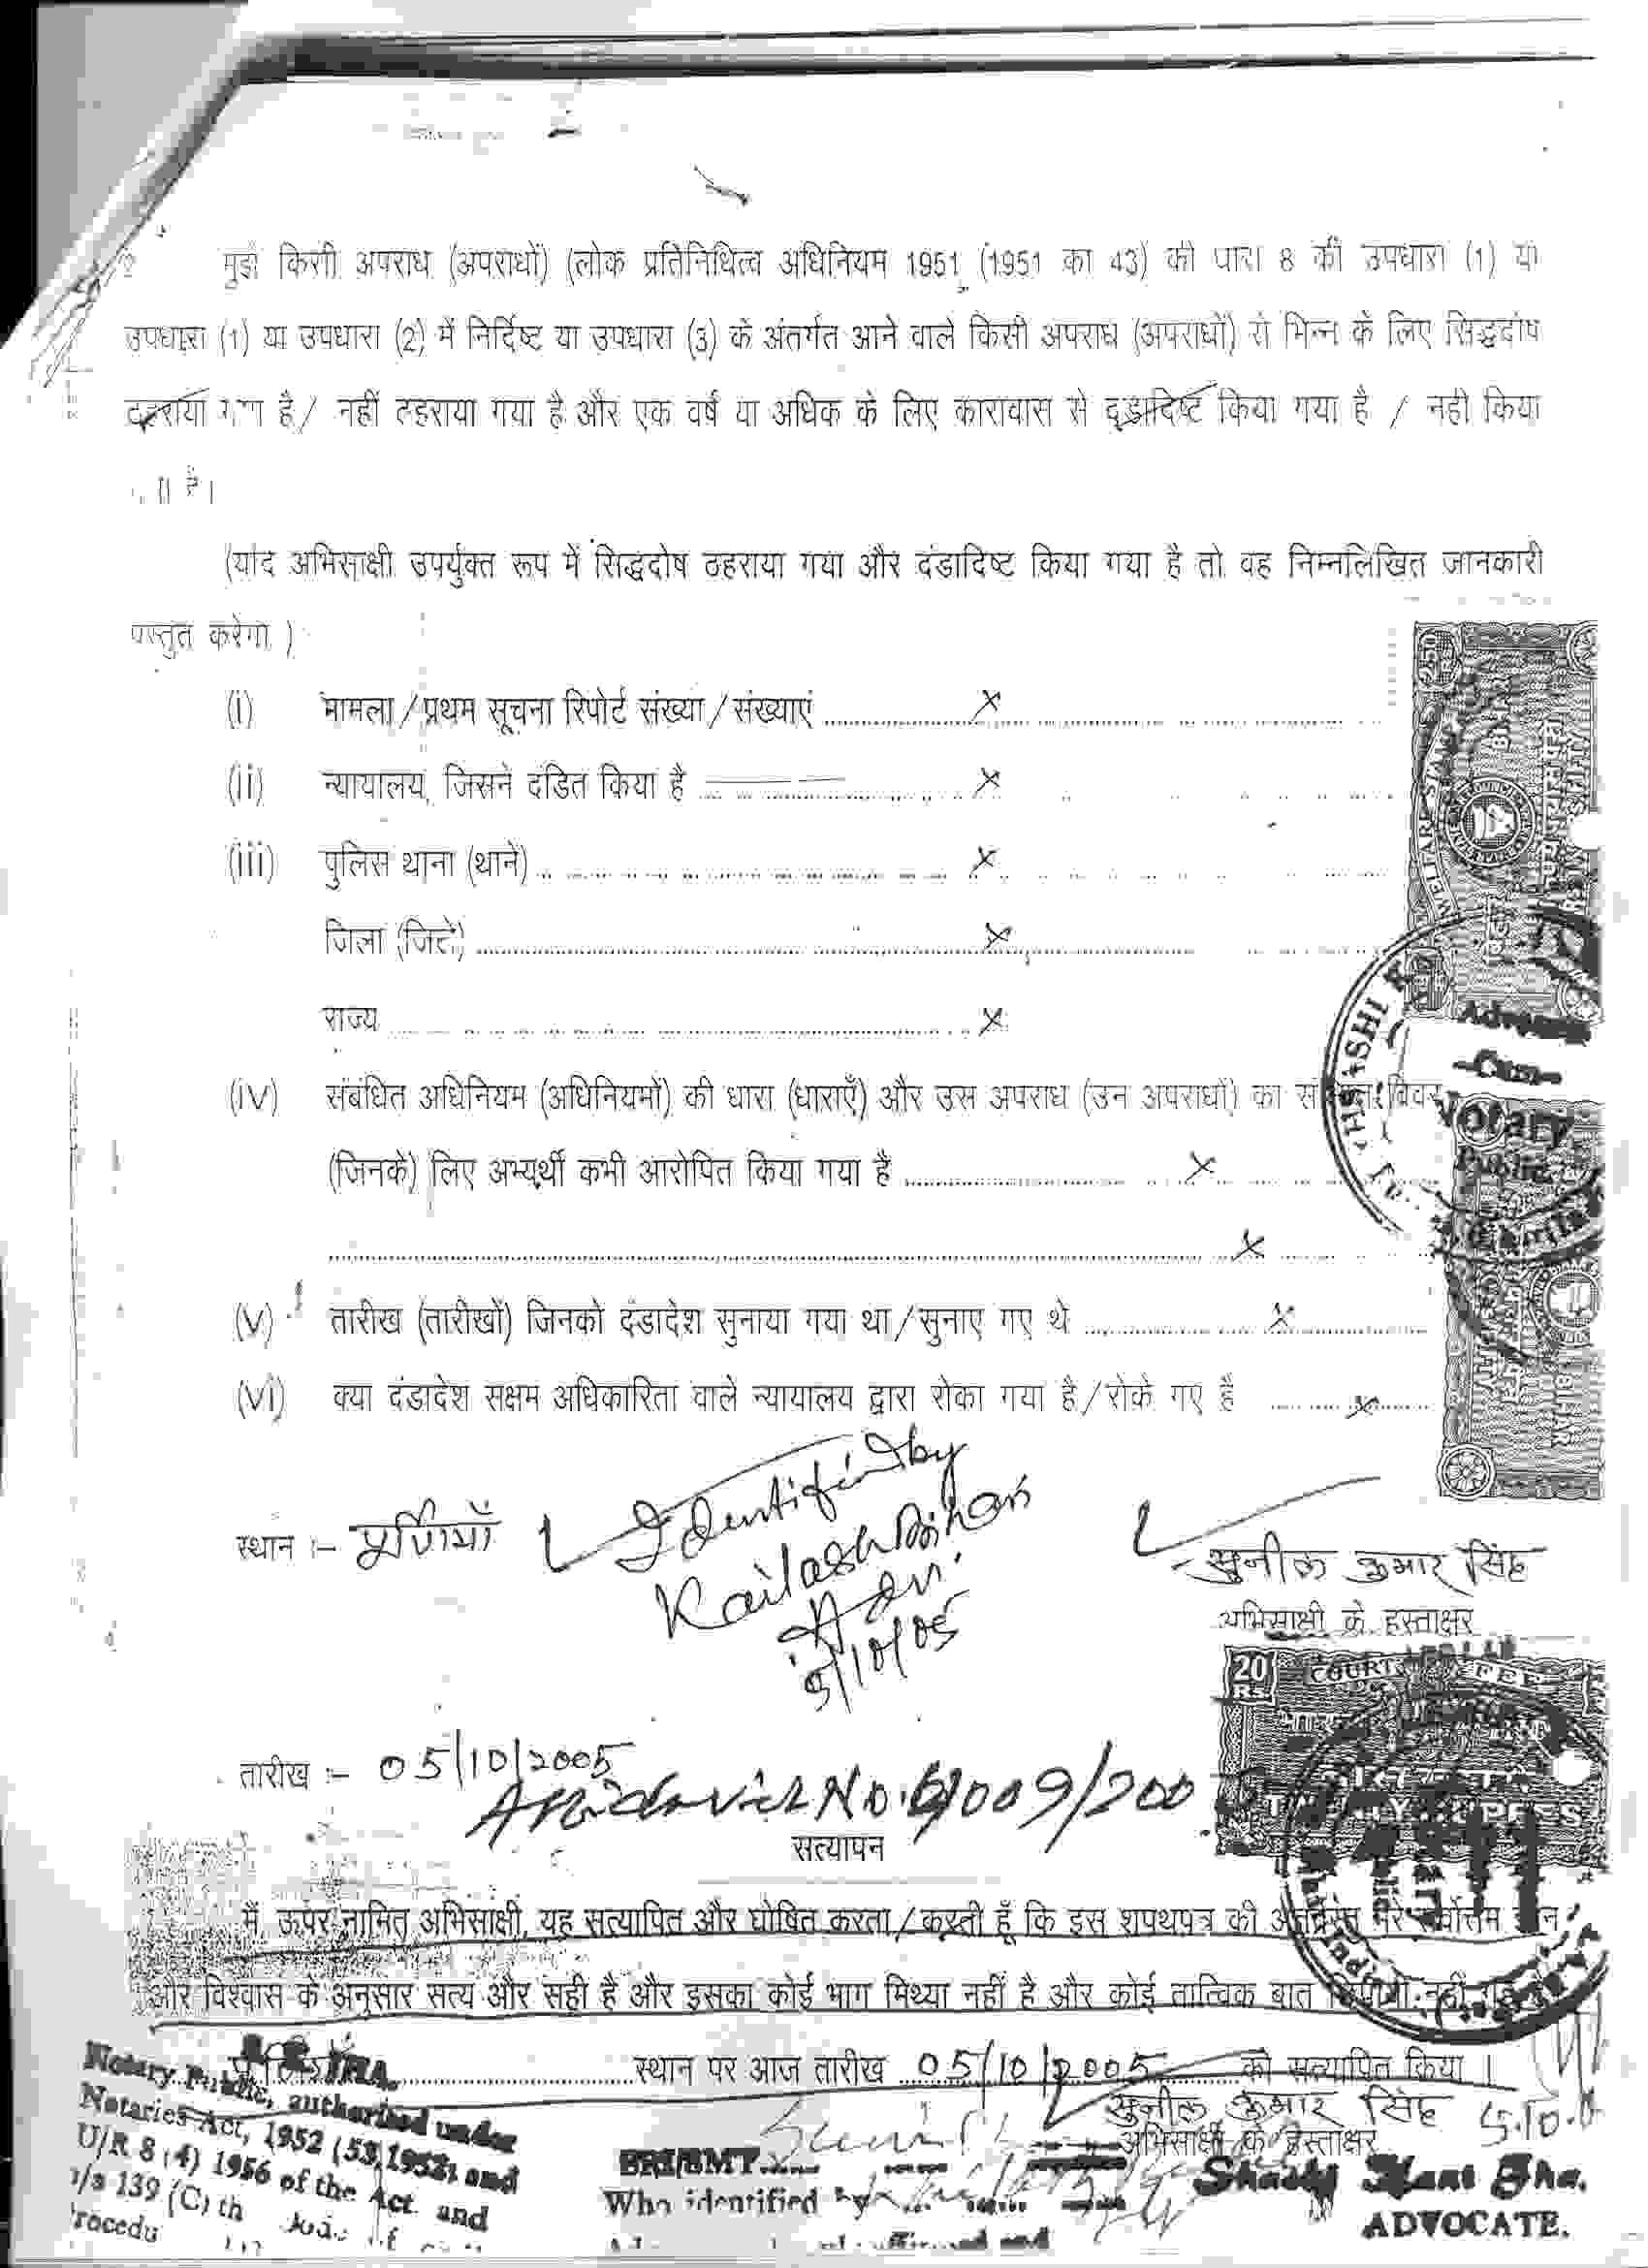 2 मुझे किसी अपराध (अपराधों) (लोक प्रतिनिधित्व अधिनियम 1951 (1951 का 43) की धारा 8 की उपधारा (1) या
उपधारा (1) या उपधारा (2) में निर्दिष्ट या उपधारा (3) के अंतर्गत आने वाले किसी अपराध (अपराधों) से भिन्न के लिए सिद्धदोष
ठहराया गया है / नहीं ठहराया गया है और एक वर्ष या अधिक के लिए कारावास से दंडादिष्ट किया गया है / नही किया
है।
(यदि अभिसाक्षी उपर्युक्त रूप में सिद्धदोष ठहराया गया और दंडादिष्ट किया गया है तो वह निम्नलिखित जानकारी
प्रस्तुत करेगा )
(i) मामला/प्रथम सूचना रिपोर्ट संख्या/संख्याएं x
(ii) न्यायालय, जिसने दंडित किया है x
(iii) पुलिस थाना (थाने) x
जिला (जिले) x
राज्य x
(iv) संबंधित अधिनियम (अधिनियमों) की धारा (धाराएँ) और उस अपराध (उन अपराधों) का
(जिनके) लिए अभ्यर्थी कभी आरोपित किया गया है x
x
(v) तारीख (तारीखों) जिनको दंडादेश सुनाया गया था/सुनाए गए थे x
(vi) क्या दंडादेश सक्षम अधिकारिता वाले न्यायालय द्वारा रोका गया है/रोके गए है x
Identified by
Kailash
Adv.
5/10/05
स्थान :- पूर्णियाँ
सुनील कुमार सिंह
अभिसाक्षी के हस्ताक्षर
20 Rs. COURT FEE
तारीख :- 05/10/2005
Affidavit No.
सत्यापन
मैं, ऊपर नामित अभिसाक्षी, यह सत्यापित और घोषित करता/करती हूँ कि इस शपथपत्र की
और विश्वास के अनुसार सत्य और सही है और इसका कोई भाग मिथ्या नहीं है और कोई तात्विक बात
स्थान पर आज तारीख 05/10/2005 को सत्यापित किया ।
सुनील कुमार सिंह
अभिसाक्षी के हस्ताक्षर
Notary Public, authorised under
Notaries Act, 1952 (53, 1952) and
U/R 8 (4) 1956 of the Act. and
139 (C) th
Who identified by
Shashi Kant Jha.
ADVOCATE.